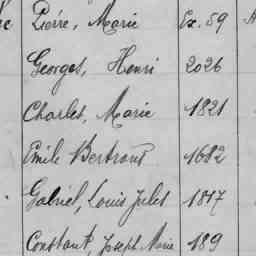 Pierre, Marie Ex. 59
Georges, Henri 2026
Charles, Marie 1821
Emile Bertrand 1682
Gabriel, Louis Jules 1817
Constant, Joseph Marie 189